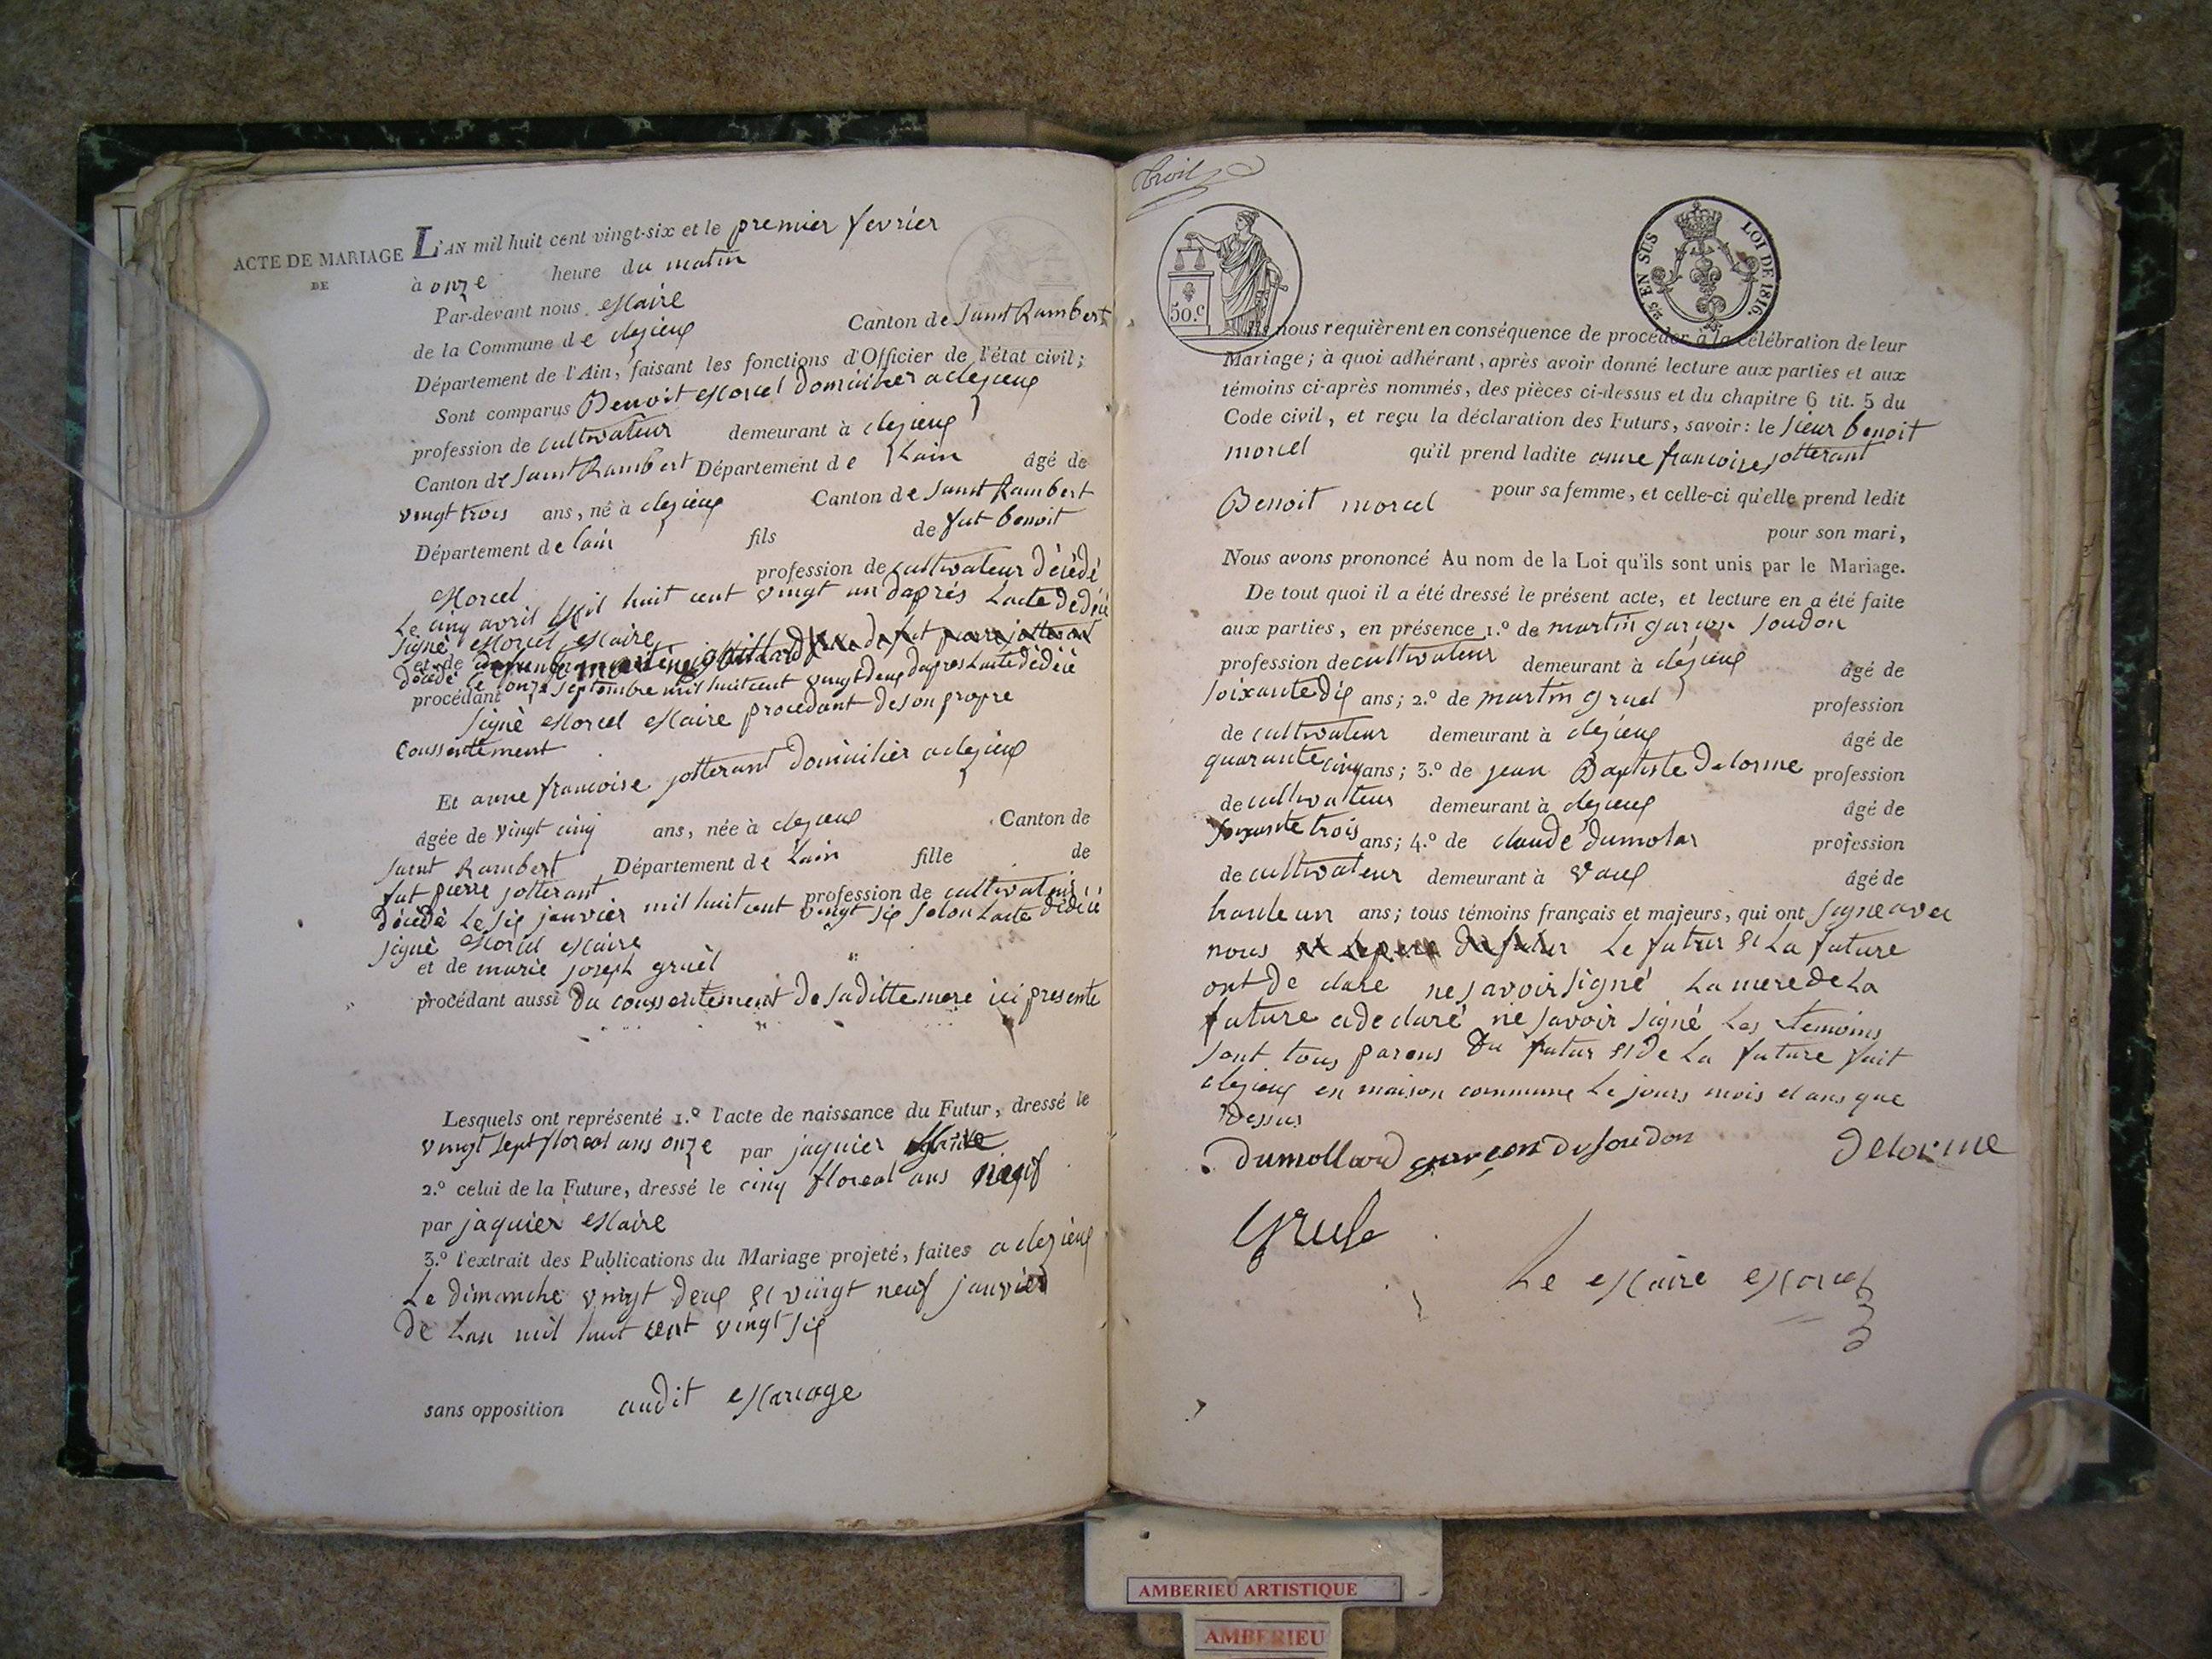 ACTE DE MARIAGE
DE
L'AN mil huit cent vingt-six et le premier fevrier
à onze heure du matin
Par-devant nous Maire
de la Commune de clezieux Canton de Saint Rambert
Département de l'Ain, faisant les fonctions d'Officier de l'état civil;
Sont comparus Benoit Morcel domicilier a clezieux
profession de cultivateur demeurant à clezieux
Canton de Saint Rambert Département de Lain âgé de
vingt trois ans, né à clezieux Canton de Saint Rambert
Département de lain fils de fut benoit
Morcel profession de cultivateur décédé
Le cinq avril Mil huit cent vingt un daprés Lacte dedécé
Signé Morcel Maire
et de
décédé le onze Septembre mil huit cent vingt deux dapres Lacte dédécé
procédant
Signé Morcel Maire procedant de son propre
Conssentement
Et anne francoise jotterant domicilier a clezieux
âgée de vingt cinq ans, née à clezieux Canton de
Saint Rambert Département de Lain fille de
fut pierre jotterant profession de cultivateur
décédé Le six janvier mil huit cent vingt six selon Lacte dédécé
signé Morcel Maire
et de marie joseph gruel
procédant aussi du conssentement de sa ditte mere ici presente
Lesquels ont représenté 1.º l'acte de naissance du Futur, dressé le
vingt sept floreal ans onze par jaquier Maire
2.º celui de la Future, dressé le cinq floreal ans neuf
par jaquier Maire
3.º l'extrait des Publications du Mariage projeté, faites a clezieux
Le dimanche vingt deux et vingt neuf janvier
de Lan mil huit cent vingt six
sans opposition audit Mariage
50.c
2/5 EN SUS LOI DE 1816.
Ils nous requièrent en conséquence de procéder à la célébration de leur
Mariage; à quoi adhérant, après avoir donné lecture aux parties et aux
témoins ci-après nommés, des pièces ci-dessus et du chapitre 6 tit. 5 du
Code civil, et reçu la déclaration des Futurs, savoir: le sieur benoit
morcel qu'il prend ladite anne francoise jotterant
pour sa femme, et celle-ci qu'elle prend ledit
Benoit morcel pour son mari,
Nous avons prononcé Au nom de la Loi qu'ils sont unis par le Mariage.
De tout quoi il a été dressé le présent acte, et lecture en a été faite
aux parties, en présence 1.º de martin garçon Soudon
profession de cultivateur demeurant à clezieux âgé de
soixante dix ans; 2.º de martin gruel profession
de cultivateur demeurant à clezieux âgé de
quarante cinq ans; 3.º de jean Baptiste Delorme profession
de cultivateur demeurant à clezieux âgé de
soixante trois ans; 4.º de claude dumolar profession
de cultivateur demeurant à vaux âgé de
trante un ans; tous témoins français et majeurs, qui ont signe avec
nous Le futur et La future
ont de clare ne savoir signé La mere de La
future a de claré ne savoir signé Les temoins
sont tous parens du futur et de La future fait
clezieux en maison commune Le jours mois et ans que
Dessus
Dumollard garçon dit soudon Delorme
Gruel
Le Maire Morcel
AMBERIEU ARTISTIQUE
AMBERIEU